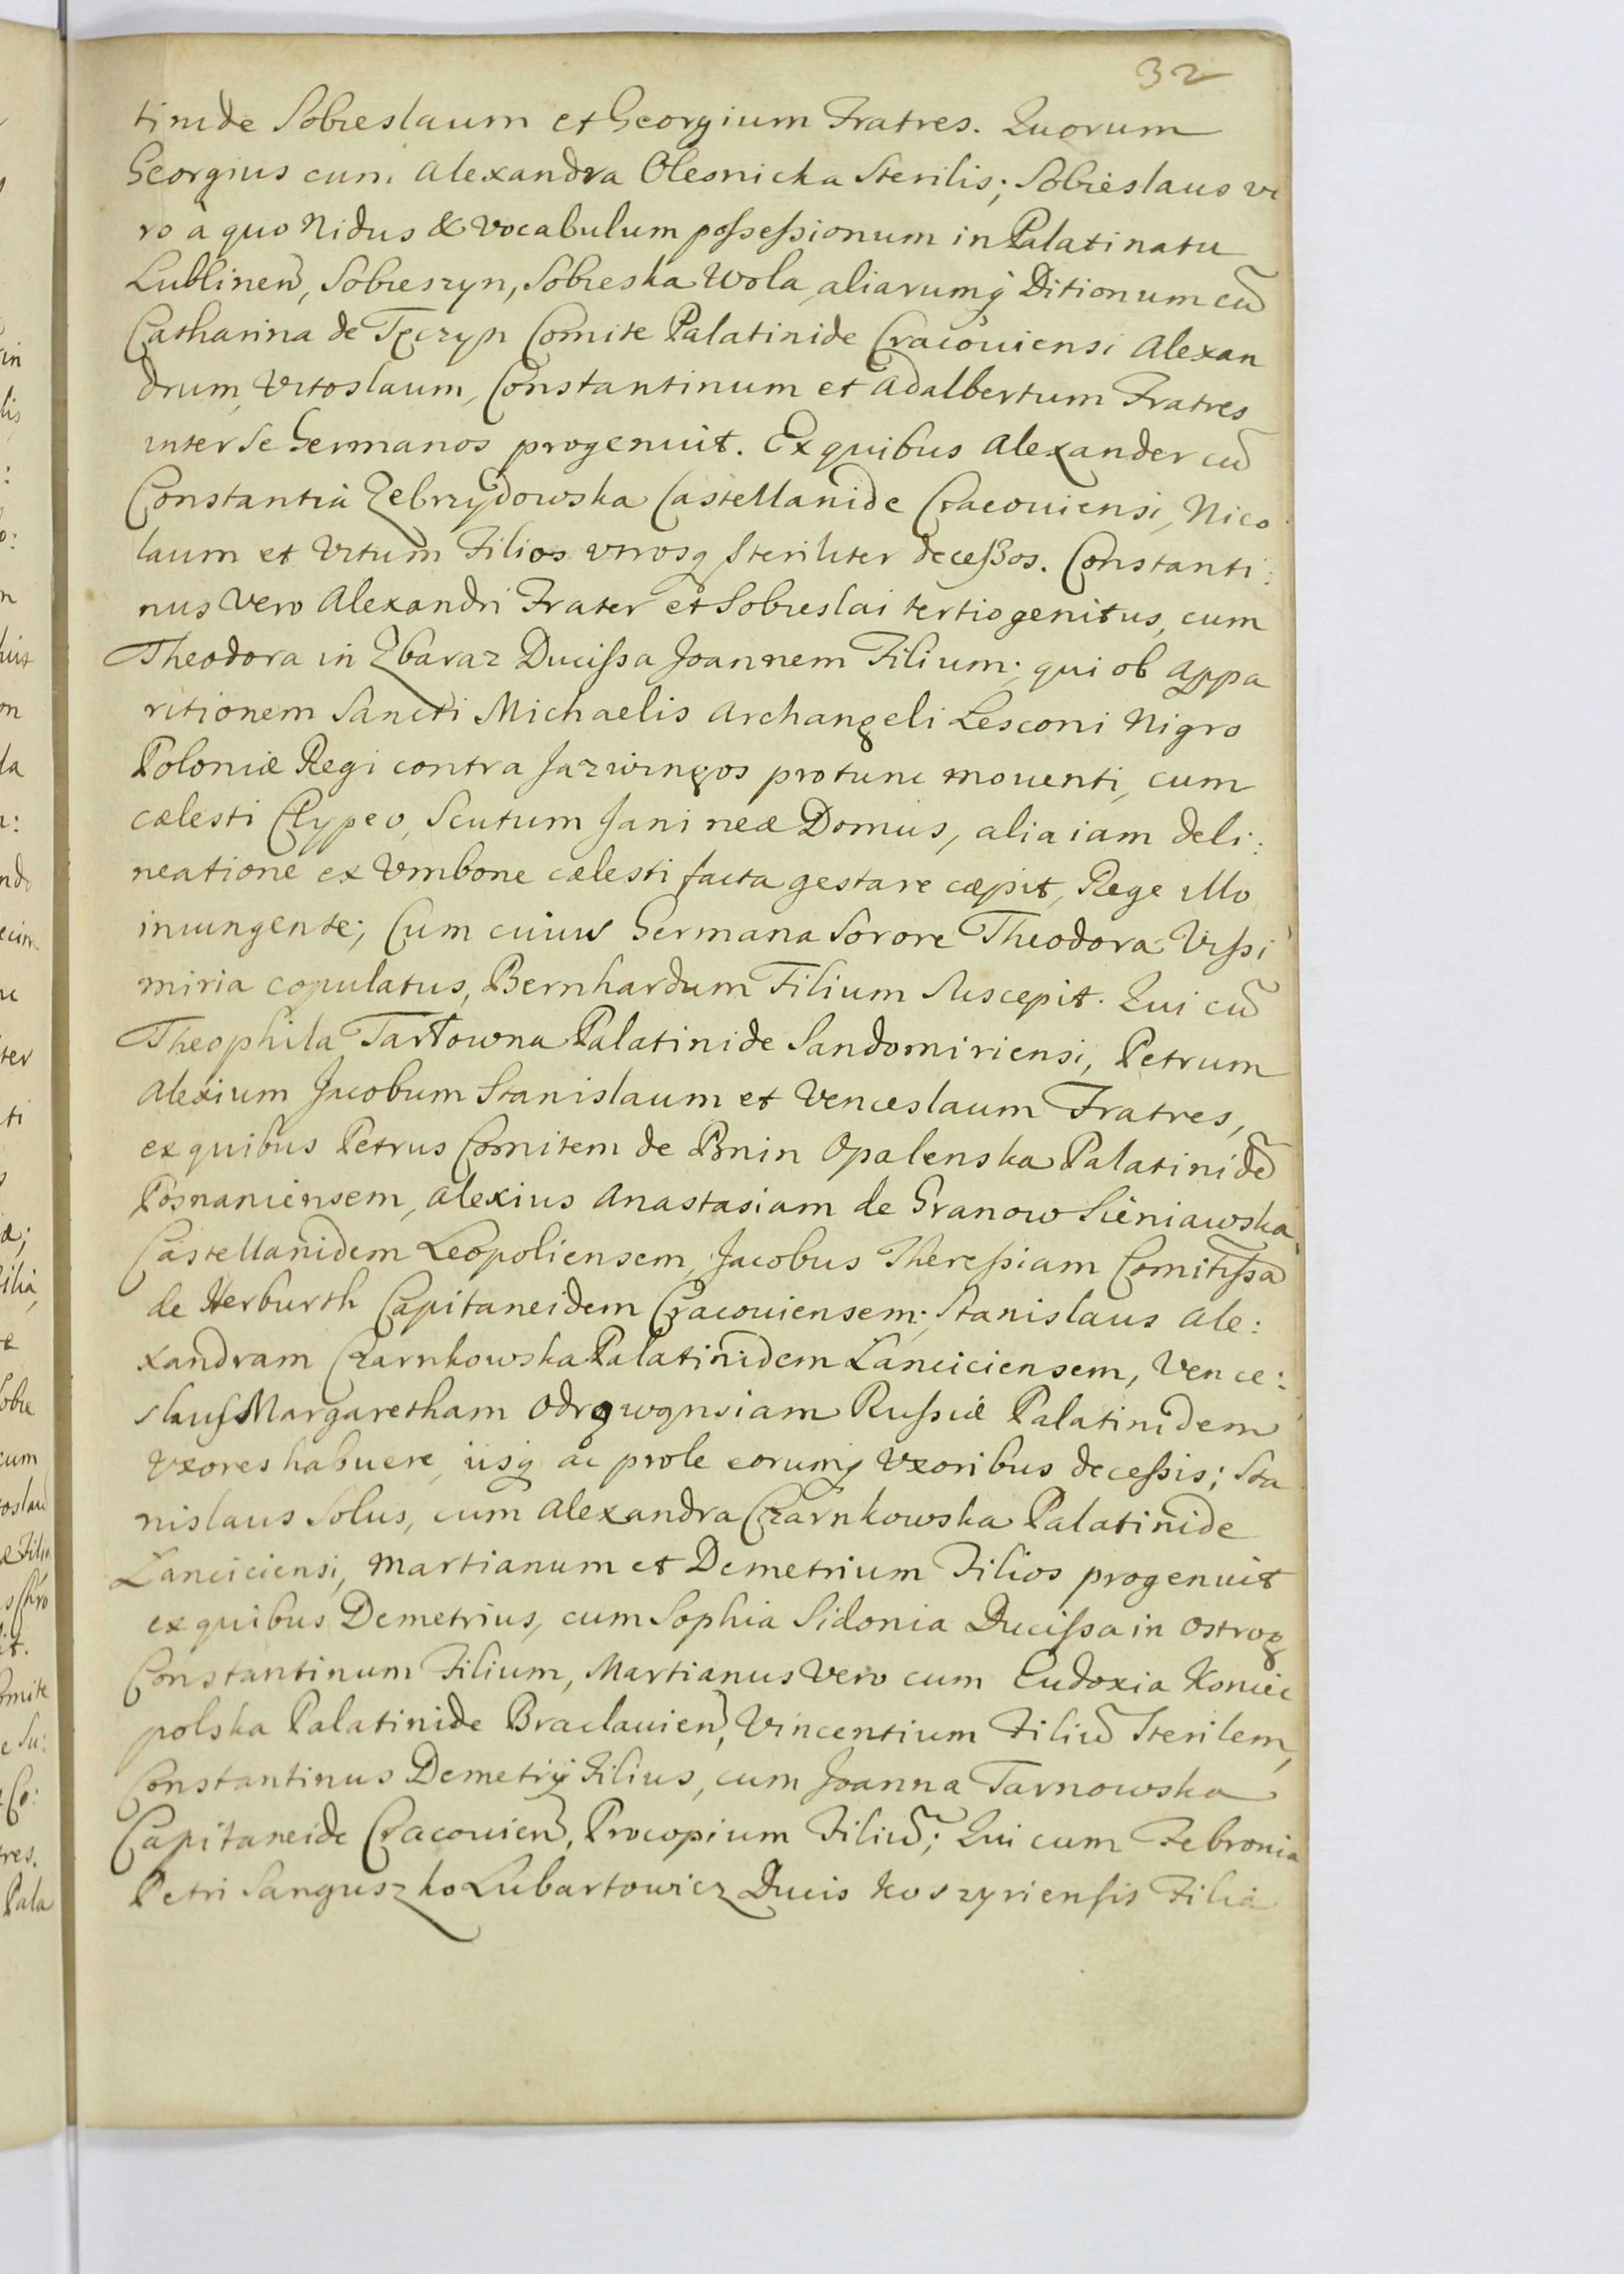 32
tinide Sobieslaum et Georgium Fratres. Quorum
Georgius cum Alexandra Olesnicka Sterilis; Sobieslaus ve
ro à quo Nidus & Vocabulum possessionum in Palatinatu
Lublinen, Sobieszyn, Sobieska Wola, aliarumq Ditionum cũ
Catharina de Tęczyn Comite Palatinide Cracouiensi Alexan
drum, Vitoslaum, Constantinum et Adalbertum Fratres
inter Se Germanos progenuit. Ex quibus Alexander cũ
Constantia Zebrzydowska Castellanide Cracouiensi, Nico
laum et Vitum Filios vtrosq Steriliter decessos. Constanti:
nus Vero Alexandri Frater et Sobieslai tertiogenitus, cum
Theodora in Zbaraz Ducissa Joannem Filium; qui ob Appa
ritionem Sancti Michaelis Archangeli Lesconi Nigro
Poloniæ Regi contra Jazwingos protunc mouenti, cum
cælesti Clypeo, Scutum Janineæ Domus, alia iam deli:
neatione ex Vmbone cælesti facta gestare cæpit, Rege illo
iniungente; Cum cuius Germana Sorore Theodora Vissi
miria copulatus, Bernhardum Filium Suscepit. Qui cũ
Theophila Tarłowna Palatinide Sandomiriensi, Petrum
Alexium Jacobum Stanislaum et Venceslaum Fratres,
ex quibus Petrus Comitem de Bnin Opalenska Palatinidẽ
Posnaniensem, Alexius Anastasiam de Granow Sieniawska
Castellanidem Leopoliensem, Jacobus Theressiam Comitissã
de Herburth Capitaneidem Cracouiensem; Stanislaus Ale:
xandram Czarnkowska Palatinidem Lanciciensem, Vence:
slaus Margaretham Odrowąnsiam Russiæ Palatinidem
Vxores habuere, iisq ac prole eorumq Vxoribus decessis; Sta
nislaus Solus, cum Alexandra Czarnkowska Palatinide
Lanciciensi, Martianum et Demetrium Filios progenuit
ex quibus Demetrius, cum Sophia Sidonia Ducissa in Ostrog
Constantinum Filium, Martianus Vero cum Eudoxia Koniec
polska Palatinide Braclauien, Vincentium Filiũ Sterilem,
Constantinus Demetrij Filius, cum Joanna Tarnowska
Capitaneide Cracouien, Procopium Filiũ; Qui cum Febronia
Petri Sanguszko Lubartowicz Ducis Koszyriensis Filia